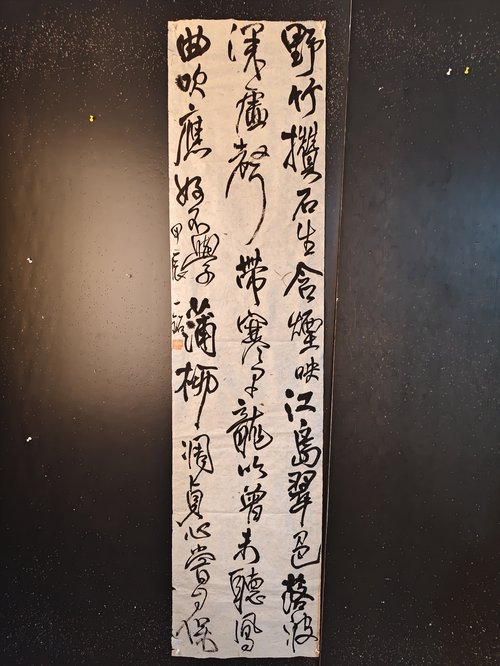 野竹攢石生含煙映江島翠色落波
深虛聲帶寒早龍吟曾未聽鳳
曲吹應好不學蒲柳凋貞心嘗自保
甲辰一